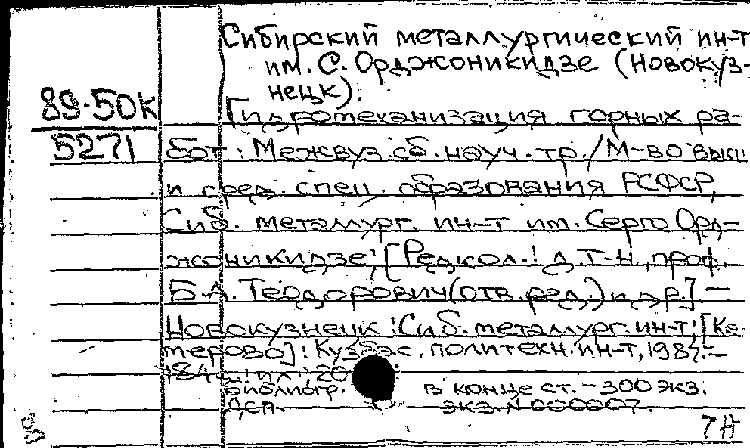 Сибирский металлургический ин-т
им. С. Орджоникидзе (Новокуз-
нецк).
89-50к
5271
Гидромеханизация горных ра-
бот: Межвуз. сб. науч. тр. / М-во высш.
и сред. спец. образования РСФСР,
Сиб. металлург. ин-т им. Серго Орд-
жоникидзе; [Редкол.: д.т.н., проф.
Б.А. Теодорович (отв. ред.) и др.] -
Новокузнецк: Сиб. металлург. ин-т; [Ке-
мерово]: Кузбас. политехн. ин-т, 198
184 с.: ил.; 20
Библиогр. в конце ст. - 300 экз.
ДСП. Экз. N 000007.